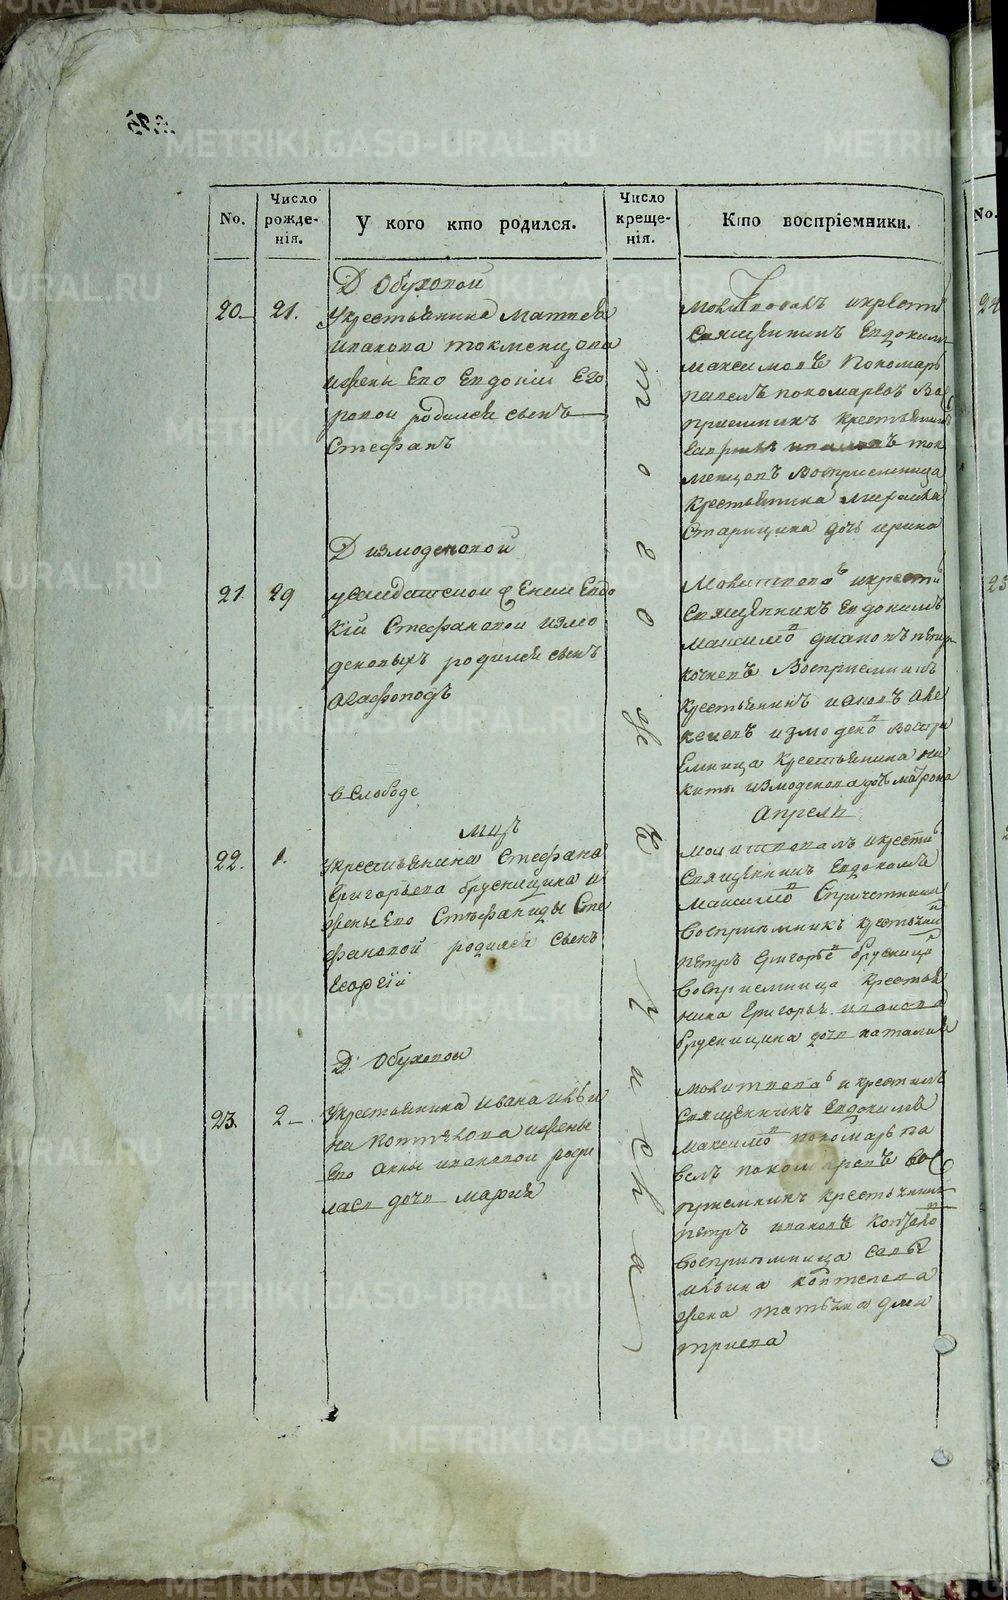 No.
Число
рожде-
нія.
У кого кто родился.
Число
креще-
нія.
Кто воспріемники.
No.
Д Обуховой
20
21.
У крестьянина Матвея
Иванова Токменцова
и жены Его Евдокіи Его
ровой родился сынъ
Стефанъ
Молитвовалъ и крестилъ
Священникъ Евдокимъ
Максимовъ Пономарь
Павелъ пономаревъ Вос
приемникъ крестьянинъ
Ток
менцовъ Восприемница
крестьянина
Старицина дочь ирина
Д измоденовой
21.
29
у салдатской Жены Евдо
кіи Стефановой измо
деновыхъ родился сынъ
Агафоподъ
Молитвовалъ и крестилъ
Священникъ Евдокимъ
Максимовъ диаконъ
Восприемникъ
крестьянинъ иаковъ Але
ксеевъ измоденовъ Воспри
емница крестьянина ни
киты измоденова дочь матрона
того же числа
в Слободе
Апрель
мцъ
22.
1.
У крестьянина Стефана
Григорьева брусницина и
жены Его Стефаниды Сте
фановой родился сынъ
Георгій
молитвовалъ и крестилъ
Священникъ Евдокимъ
Максимовъ С причетники
восприемникъ крестьянинъ
петръ Григорьевъ брусницинъ
восприемница крестья
нина Григорья иванова
брусницина дочь наталия
Д. Обуховой
23.
2
У крестьянина Ивана Ильи
на Коптелова и жены
Его Анны ивановой роди
лась дочь Мария
молитвовалъ и крестилъ
Священникъ Евдокимъ
Максимовъ пономарь па
велъ пономаревъ вос
приемникъ крестьянинъ
петръ ивановъ Коптело
восприемница Савы
ильина коптелова
жена татьяна дми
триева